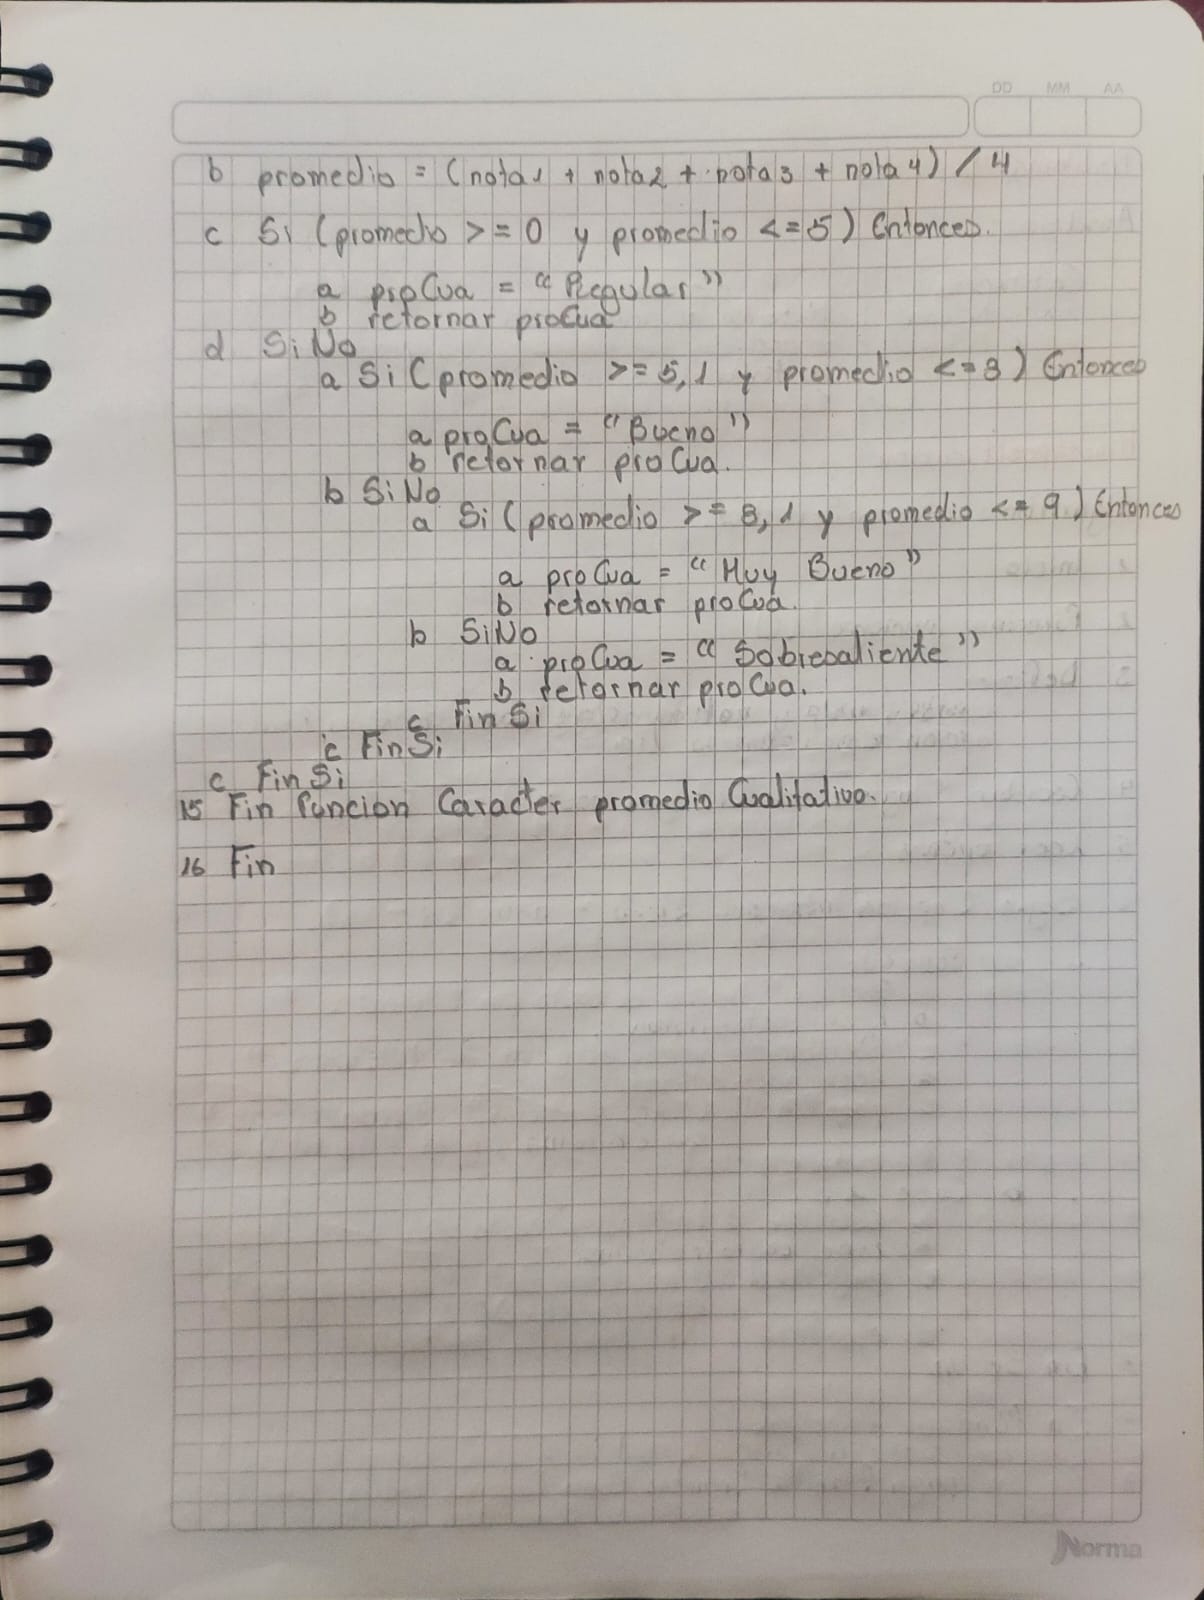 DD MM AA
b promedio = (nota1 + nota2 + nota3 + nota4) / 4
c Si (promedio >= 0 y promedio <= 5) Entonces.
a proCua = "Regular"
b retornar proCua
d SiNo
a Si (promedio >= 5,1 y promedio <= 8) Entonces
a proCua = "Bueno"
b retornar proCua.
b SiNo
a Si (promedio >= 8,1 y promedio <= 9) Entonces
a proCua = "Muy Bueno"
b retornar proCua.
b SiNo
a proCua = "Sobresaliente"
b retornar proCua.
c Fin Si
c Fin Si
c Fin Si
15 Fin Funcion Caracter promedio Cualitativo.
16 Fin
Norma